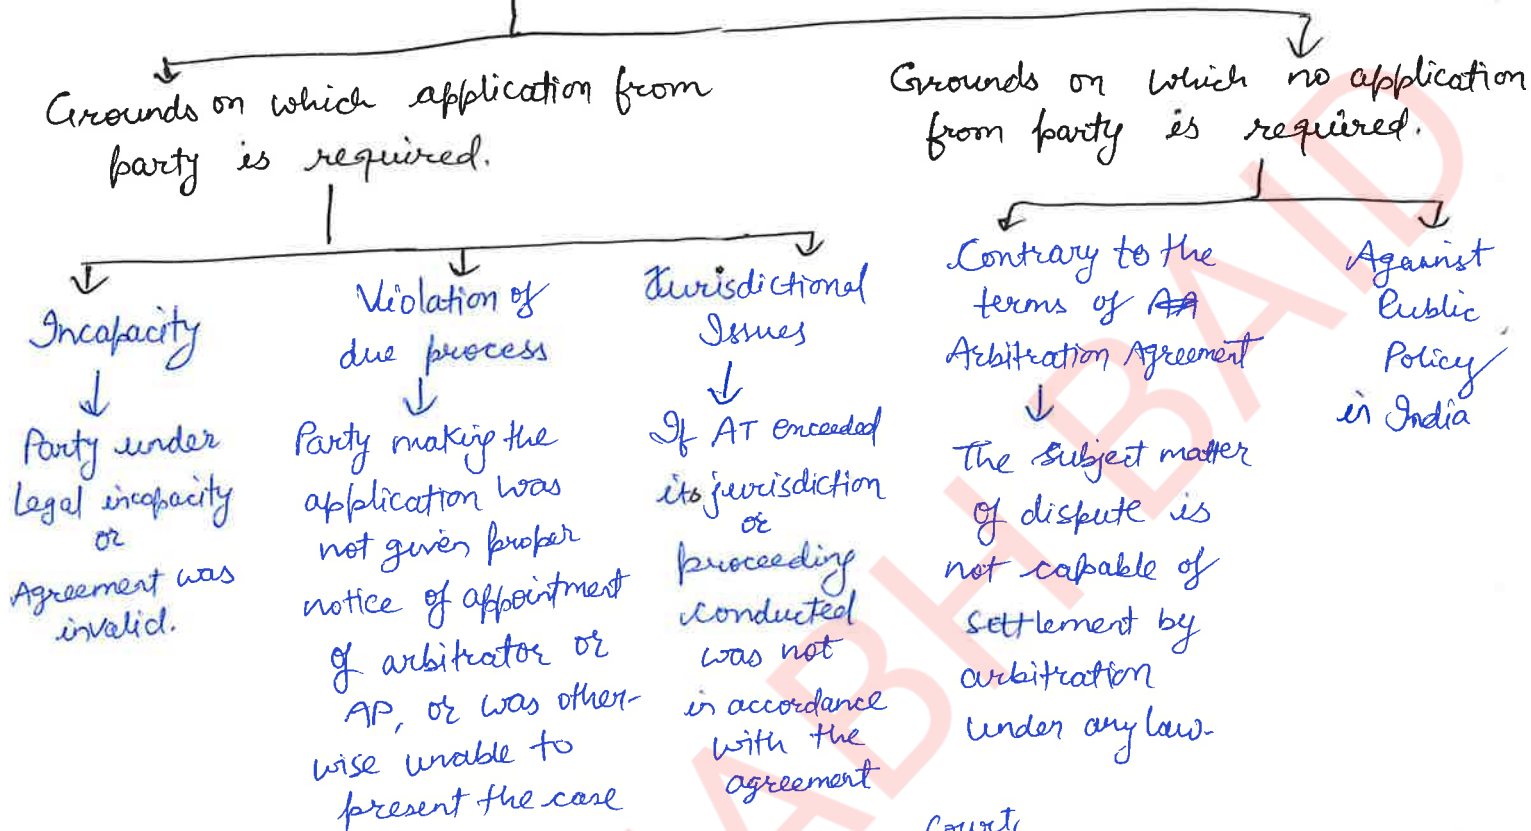 Grounds on which application from
party is required.
Grounds on which no application
from party is required.
Incapacity
Party under
legal incapacity
or
Agreement was
invalid.
Violation of
due process
Party making the
application was
not given proper
notice of appointment
of arbitrator or
AP, or was other-
wise unable to
present the case
Jurisdictional
Issues
If AT exceeded
its jurisdiction
or
proceeding
conducted
was not
in accordance
with the
agreement
Contrary to the
terms of AA
Arbitration Agreement
The subject matter
of dispute is
not capable of
settlement by
arbitration
under any law.
Against
Public
Policy
in India
ABH BAID